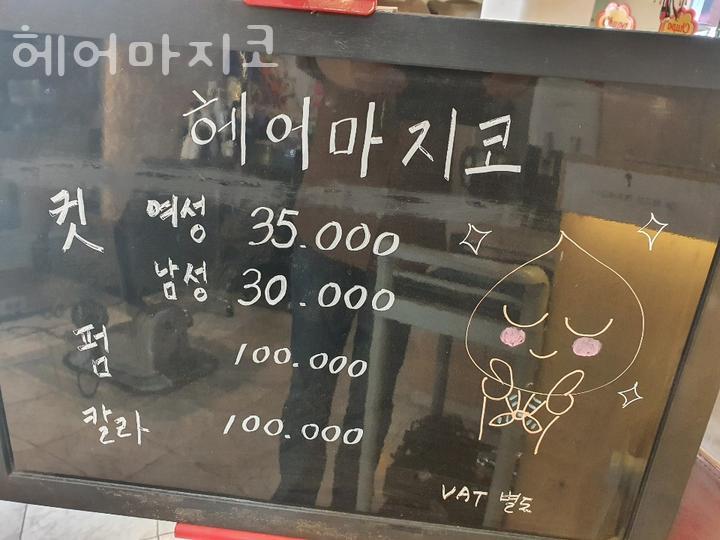 헤어마지코
헤어마지코
컷 여성 35.000
남성 30.000
펌 100.000
칼라 100.000
VAT 별도